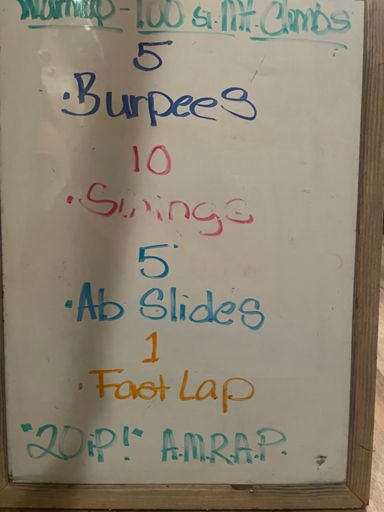 Warmup - 100 si Mt. Climbs
5
• Burpees
10
• Swings
5
• Ab Slides
1
• Fast Lap
"20iP!" A.M.R.A.P.